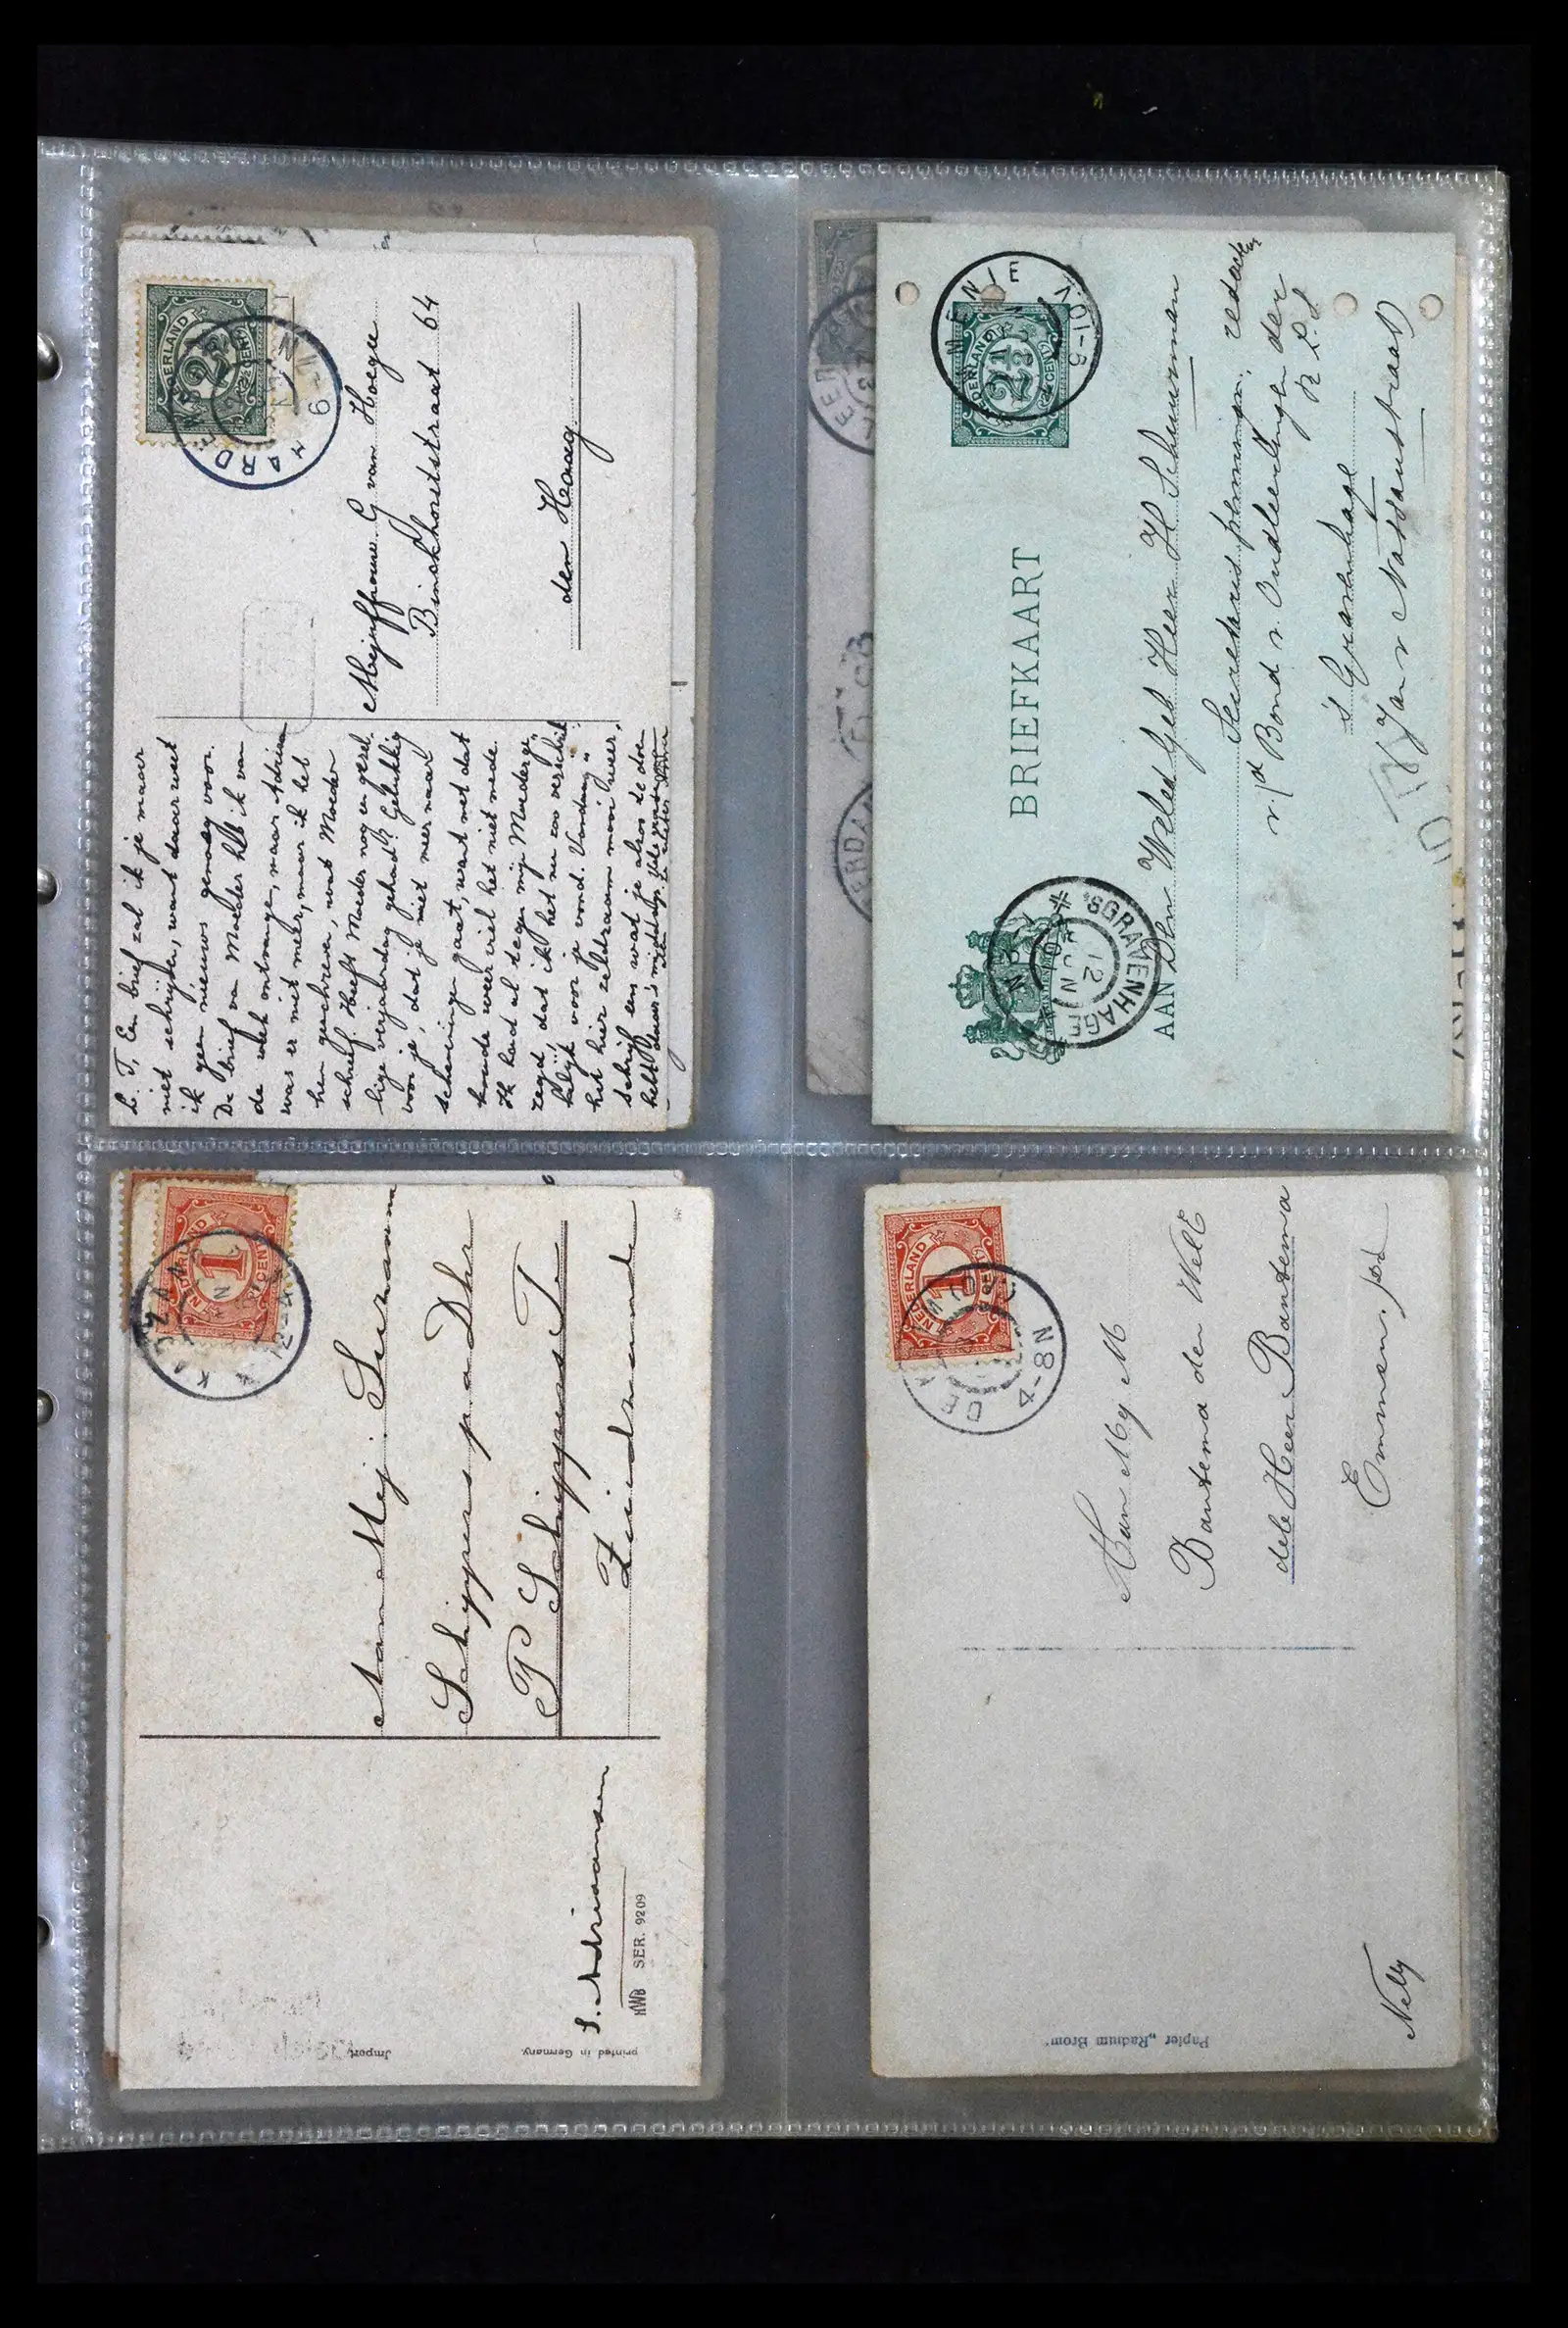 L. T. Een brief zal ik je maar
niet schrijven, want daar weet
ik geen nieuws genoeg voor.
De brief van Moeder heb ik van
de week ontvangen, maar Adriaan
was er niet meer, maar ik heb
hem geschreven, wat Moeder
schreef. Heeft Moeder nog en gezel-
lige verjaardag gehad? Gelukkig
voor je, dat je niet meer naar
scheveningen gaat, want met dat
koude weer viel het niet mede.
Ik had al tegen mijn Moeder ge-
zegd, dat ik het nu zoo verschrik-
kelijk voor je vond. Vandaag is
het hier zeldzaam mooi weer,
schrijf eens wat je alzoo te doen
hebt
NEDERLAND
2½
CENT
NAARDEN
6-
Mejuffrouw G van Hoegee
Binckhorststraat 64
den Haag.
NEDERLAND
2½
CENT
MENIE
6-10 V
BRIEFKAART
'SGRAVENHAGE
12 JUN
AAN Den Weled Geb Heer H Schuurman
Secretaris penningm. redacteur
v/d Bond v. Oudleerlingen der
R L. S
's Gravenhage
Jan v Nassaustraat
NEDERLAND
1
CENT
12-4N
Aan Mej. Suzanna
Schippers p.a Dhr
P Schippers Tz
Zuidzande
S. Adriaansen
HWB SER. 9209
Import
printed in Germany.
NEDERLAND
1
CENT
4-8N
Aan Mej M
Bantema den Wele
dele Heer Bantema
Emmen.
Nelly
Papier „Radium Brom"